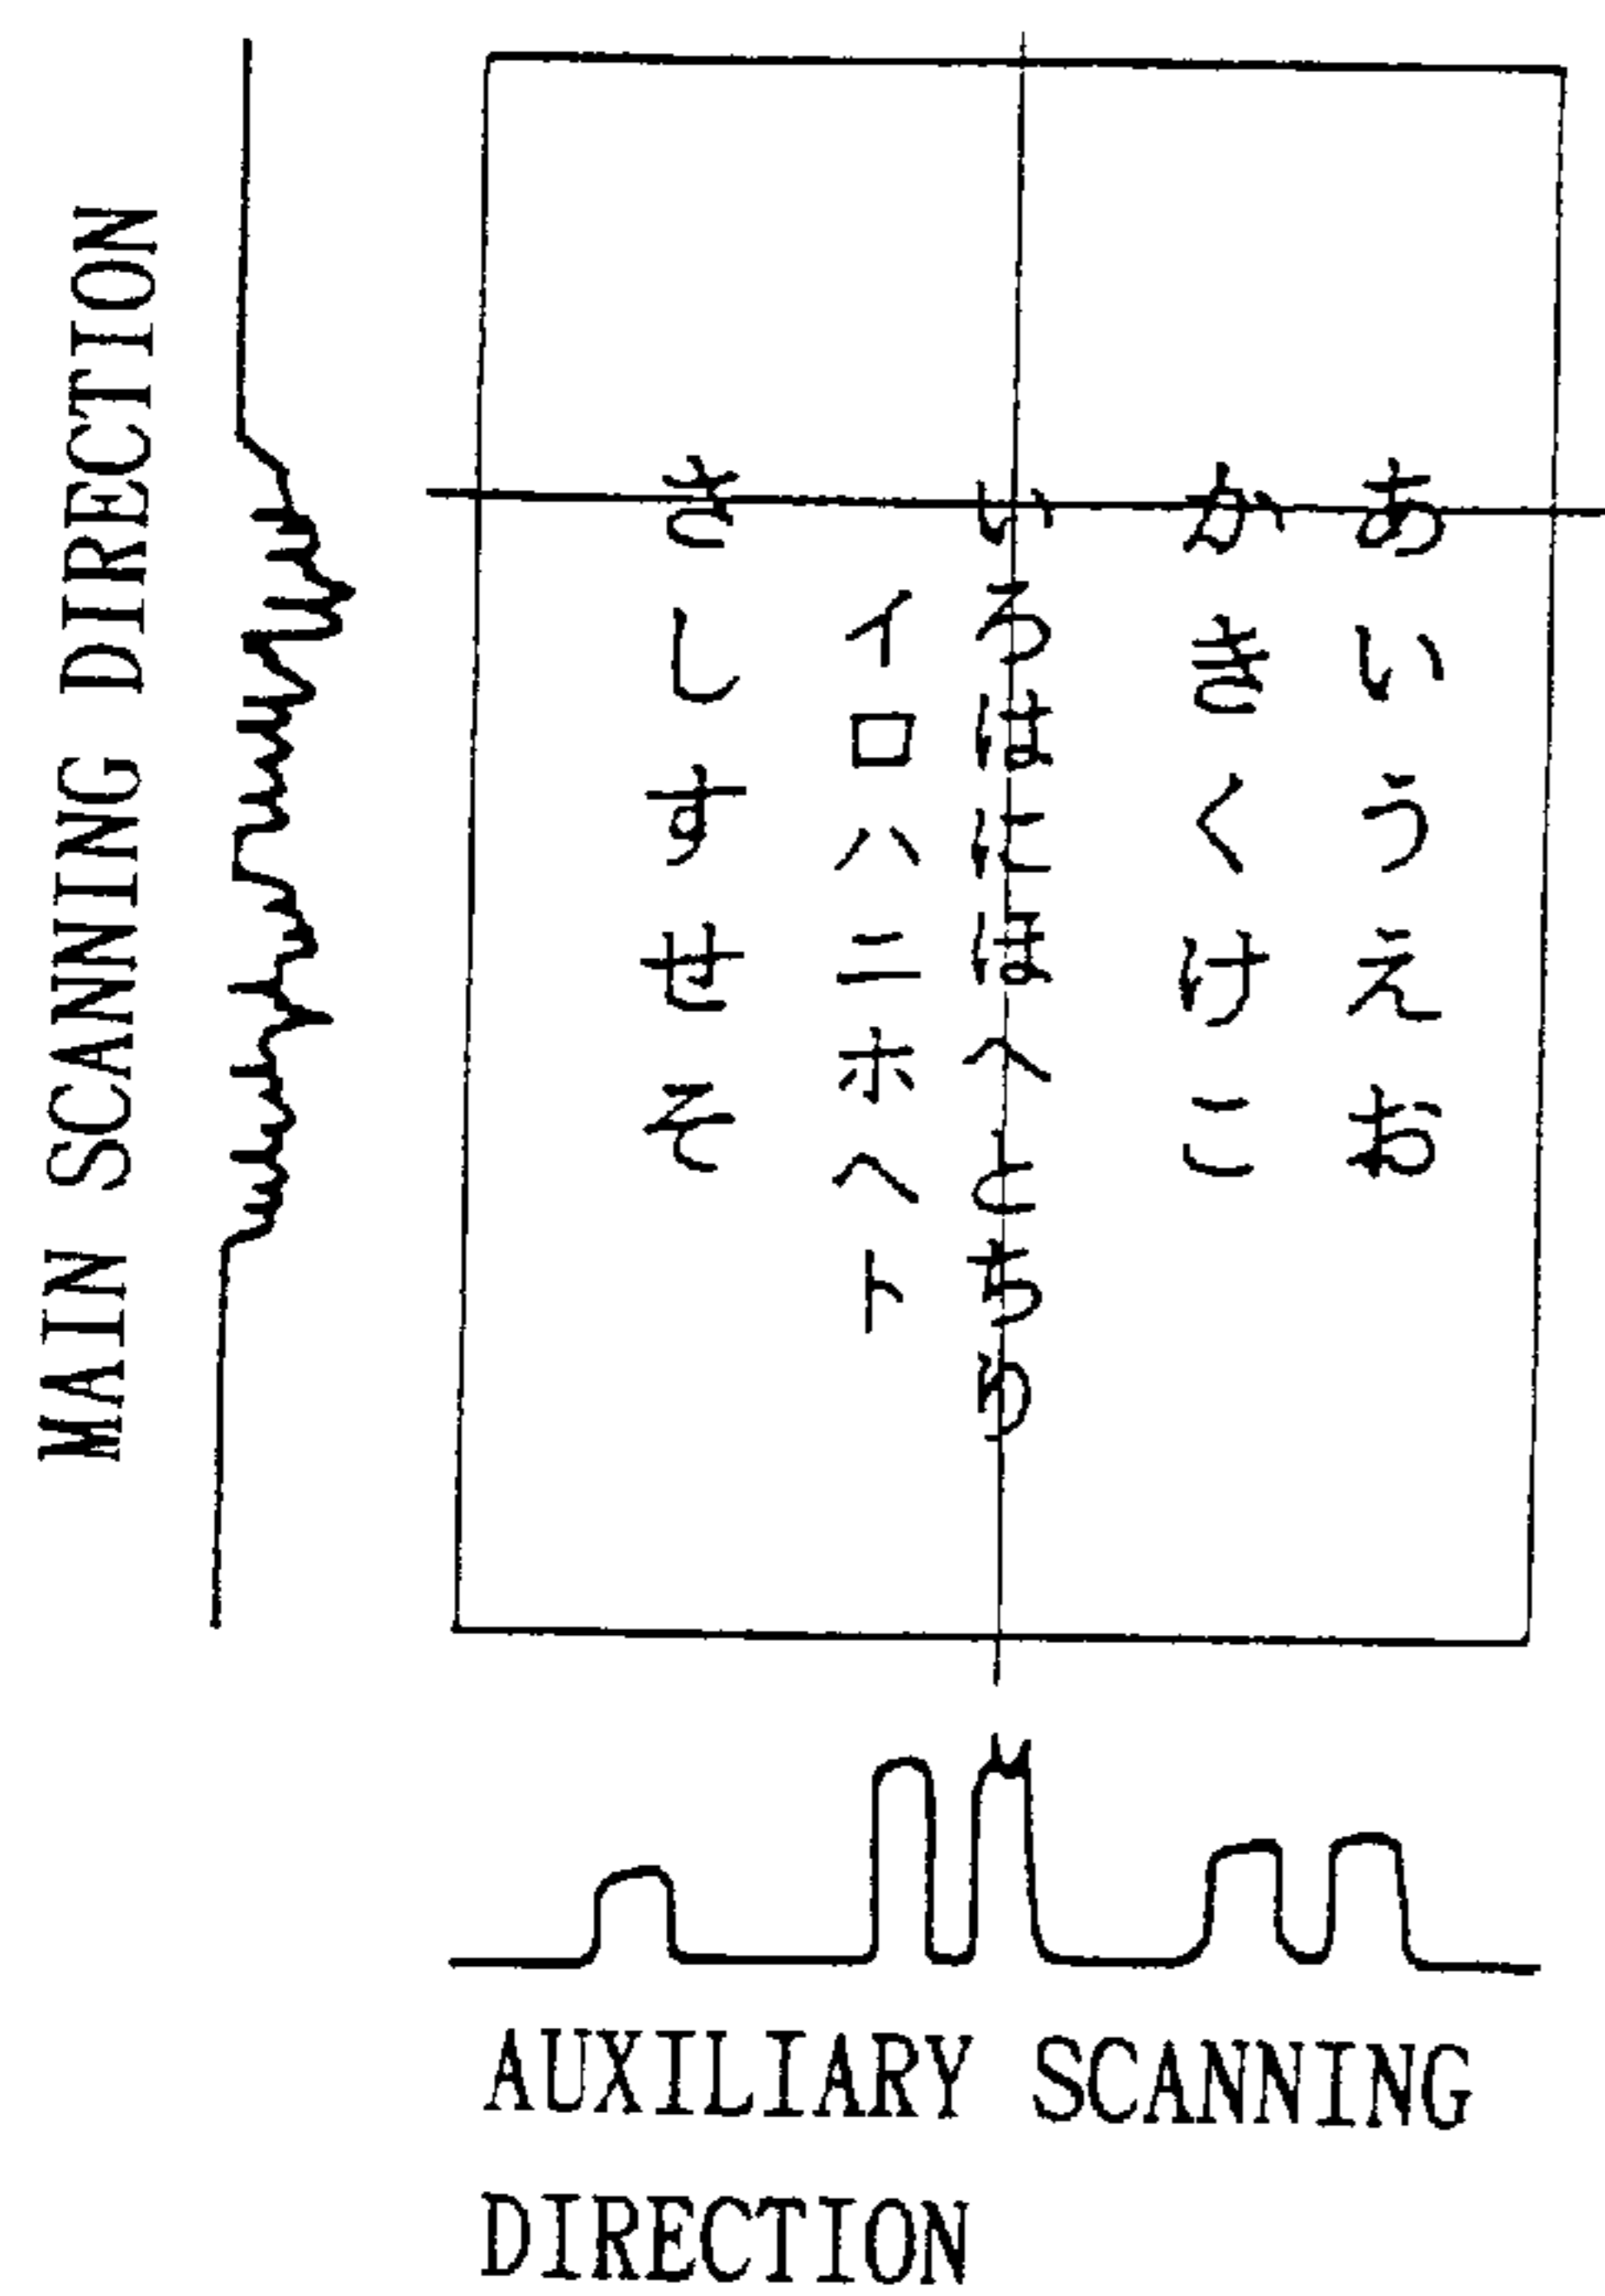 MAIN SCANNING DIRECTION
あいうえお
かきくけこ
いろはにほへとちり
イロハニホヘト
さしすせそ
AUXILIARY SCANNING
DIRECTION